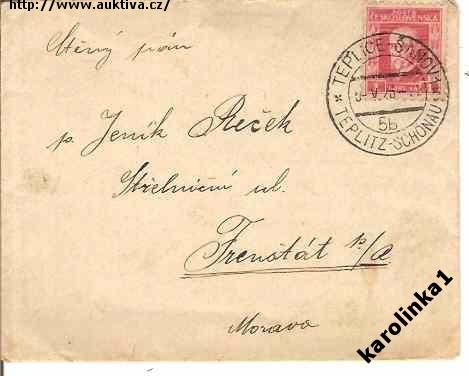 http://www.auktiva.cz/
POŠTA
ČESKOSLOVENSKÁ
TEPLICE-ŠANOV 1
5b
TEPLITZ-SCHÖNAU
Ctěný pán
p. Jeník Reček
Střelniční ul.
Frenštát p/R
Morava
karolinka1